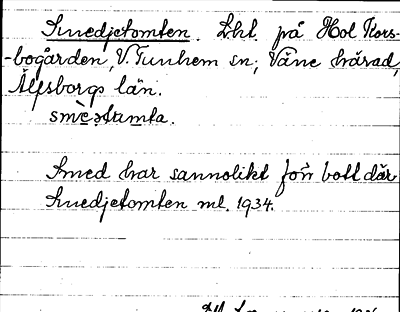 Smedjetomten. Lht. på Hol Kors-
-bogården, V. Tunhem sn; Väne härad,
Älfsborgs län.
smèətamta.
Smed har sannolikt förr bott där
Smedjetomten ml. 1934.